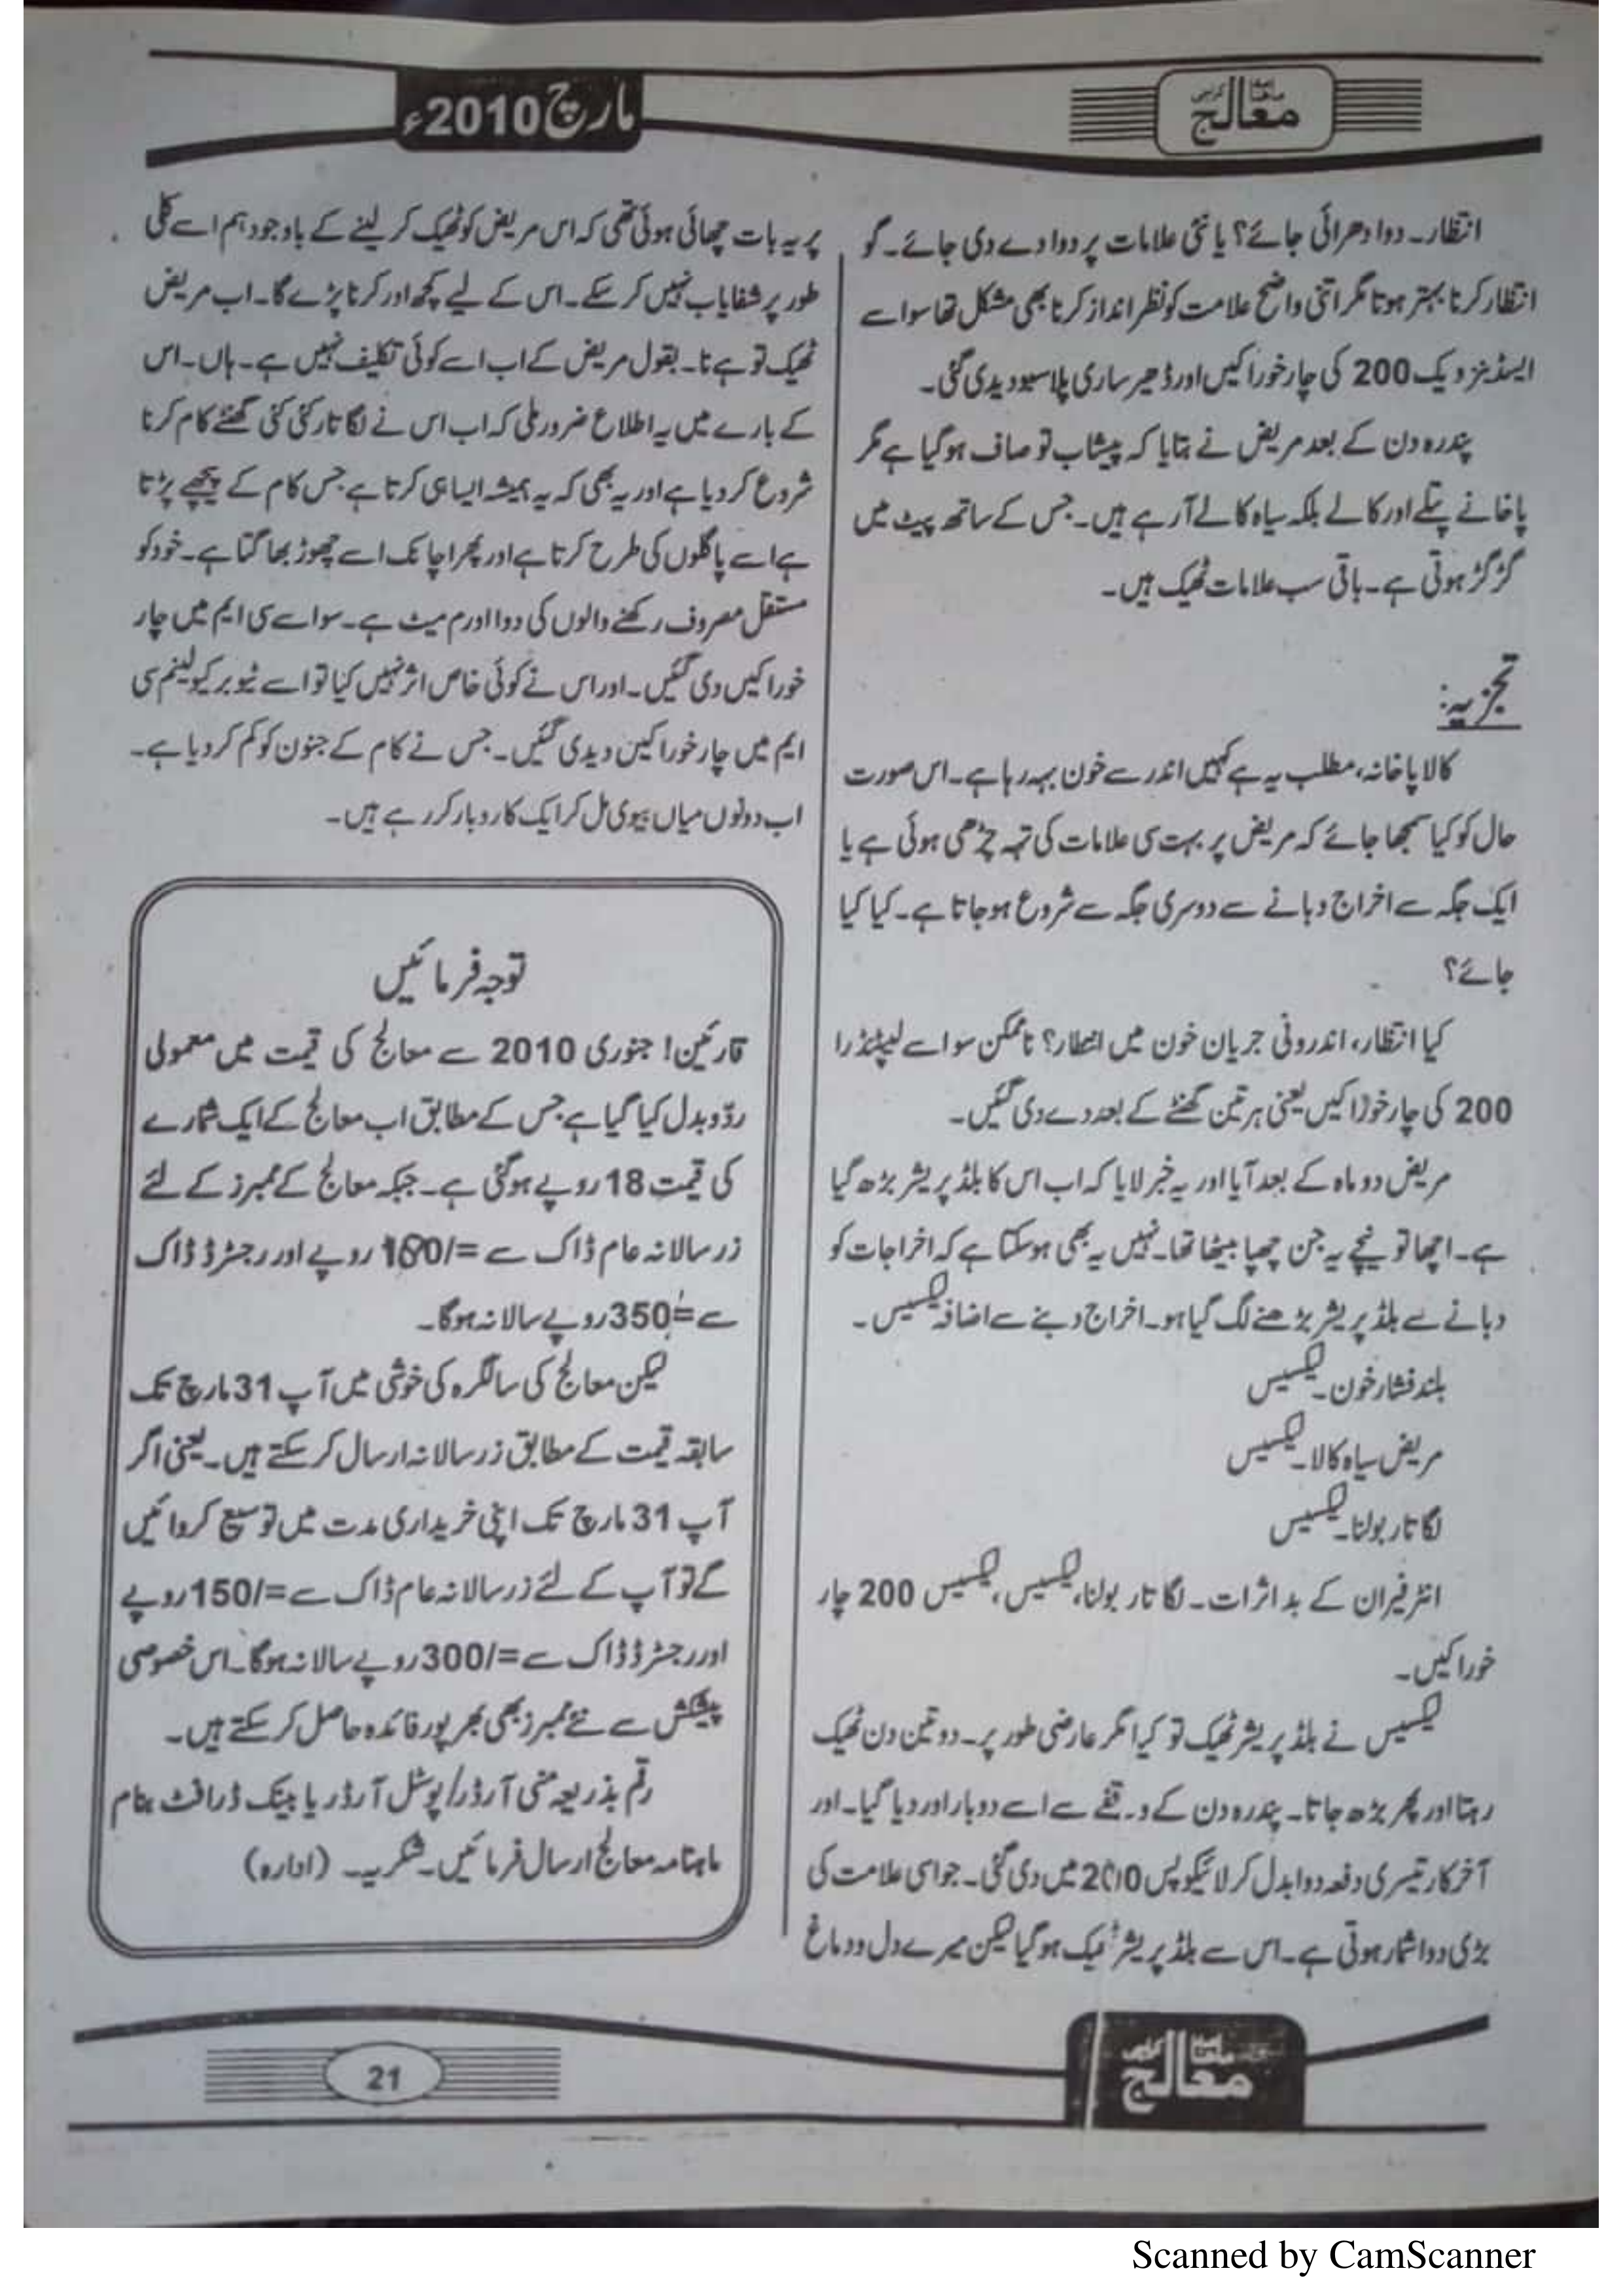 ماہنامہ معالج کراچی
مارچ 2010ء
انتظار۔ دوا دھرائی جائے؟ یا نئی علامات پر دوا دے دی جائے۔ گو
انتظار کرنا بہتر ہوتا مگر اتنی واضح علامت کو نظر انداز کرنا بھی مشکل تھا سو اسے
ایسڈ بنزویک 200 کی چار خوراکیں اور ڈھیر ساری پلاسیبو دیدی گئی۔
پندرہ دن کے بعد مریض نے بتایا کہ پیشاب تو صاف ہو گیا ہے مگر
پاخانے پتلے اور کالے بلکہ سیاہ کالے آرہے ہیں۔ جس کے ساتھ پیٹ میں
گڑگڑ ہوتی ہے۔ باقی سب علامات ٹھیک ہیں۔
تجزیہ:
کالا پاخانہ، مطلب یہ ہے کہیں اندر سے خون بہہ رہا ہے۔ اس صورت
حال کو کیا سمجھا جائے کہ مریض پر بہت سی علامات کی تہہ چڑھی ہوئی ہے یا
ایک جگہ سے اخراج دبانے سے دوسری جگہ سے شروع ہو جاتا ہے۔ کیا کیا
جائے؟
کیا انتظار، اندرونی جریان خون میں انتظار؟ ناممکن سو اسے لیپٹنڈرا
200 کی چار خوراکیں یعنی ہر تین گھنٹے کے بعد دے دی گئیں۔
مریض دو ماہ کے بعد آیا اور یہ خبر لایا کہ اب اس کا بلڈ پریشر بڑھ گیا
ہے۔ اچھا تو نیچے یہ جن چھپا بیٹھا تھا۔ نہیں یہ بھی ہوسکتا ہے کہ اخراجات کو
دبانے سے بلڈ پریشر بڑھنے لگ گیا ہو۔ اخراج دبنے سے اضافہ لیکسیس۔
بلند فشار خون۔ لیکسیس
مریض سیاہ کالا۔ لیکسیس
لگاتار بولنا۔ لیکسیس
انٹرفیران کے بد اثرات۔ لگاتار بولنا، لیکسیس، لیکسیس 200 چار
خوراکیں۔
لیکسیس نے بلڈ پریشر ٹھیک تو کیا مگر عارضی طور پر۔ دو تین دن ٹھیک
رہتا اور پھر بڑھ جاتا۔ پندرہ دن کے وقفے سے اسے دوبار اور دیا گیا۔ اور
آخر کار تیسری دفعہ دوا بدل کر لائیکوپس 200 میں دی گئی۔ جو اسی علامت کی
بڑی دوا شمار ہوتی ہے۔ اس سے بلڈ پریشر ٹھیک ہوگیا لیکن میرے دل و دماغ
پر یہ بات چھائی ہوئی تھی کہ اس مریض کو ٹھیک کر لینے کے باوجود ہم اسے کلی
طور پر شفایاب نہیں کرسکے۔ اس کے لیے کچھ اور کرنا پڑے گا۔ اب مریض
ٹھیک تو ہے نا۔ بقول مریض کے اب اسے کوئی تکلیف نہیں ہے۔ ہاں۔ اس
کے بارے میں یہ اطلاع ضرور ملی کہ اب اس نے لگاتار کئی کئی گھنٹے کام کرنا
شروع کردیا ہے اور یہ بھی کہ یہ ہمیشہ ایسا ہی کرتا ہے جس کام کے پیچھے پڑتا
ہے اسے پاگلوں کی طرح کرتا ہے اور پھر اچانک اسے چھوڑ بھاگتا ہے۔ خود کو
مستقل مصروف رکھنے والوں کی دوا اورم میٹ ہے۔ سو اسے سی ایم میں چار
خوراکیں دی گئیں۔ اور اس نے کوئی خاص اثر نہیں کیا تو اسے ٹیوبرکیولینم سی
ایم میں چار خوراکیں دیدی گئیں۔ جس نے کام کے جنون کو کم کردیا ہے۔
اب دونوں میاں بیوی مل کر ایک کاروبار کر رہے ہیں۔
توجہ فرمائیں
قارئین! جنوری 2010 سے معالج کی قیمت میں معمولی
ردّ و بدل کیا گیا ہے جس کے مطابق اب معالج کے ایک شمارے
کی قیمت 18 روپے ہوگئی ہے۔ جبکہ معالج کے ممبرز کے لئے
زر سالانہ عام ڈاک سے =/180 روپے اور رجسٹرڈ ڈاک
سے =/350 روپے سالانہ ہوگا۔
لیکن معالج کی سالگرہ کی خوشی میں آپ 31 مارچ تک
سابقہ قیمت کے مطابق زر سالانہ ارسال کرسکتے ہیں۔ یعنی اگر
آپ 31 مارچ تک اپنی خریداری مدت میں توسیع کروائیں
گے تو آپ کے لئے زر سالانہ عام ڈاک سے =/150 روپے
اور رجسٹرڈ ڈاک سے =/300 روپے سالانہ ہوگا۔ اس خصوصی
پیکش سے نئے ممبرز بھی بھرپور فائدہ حاصل کرسکتے ہیں۔
رقم بذریعہ منی آرڈر/پوسٹل آرڈر یا بینک ڈرافٹ بنام
ماہنامہ معالج ارسال فرمائیں۔ شکریہ۔ (ادارہ)
ماہنامہ معالج کراچی
21
Scanned by CamScanner